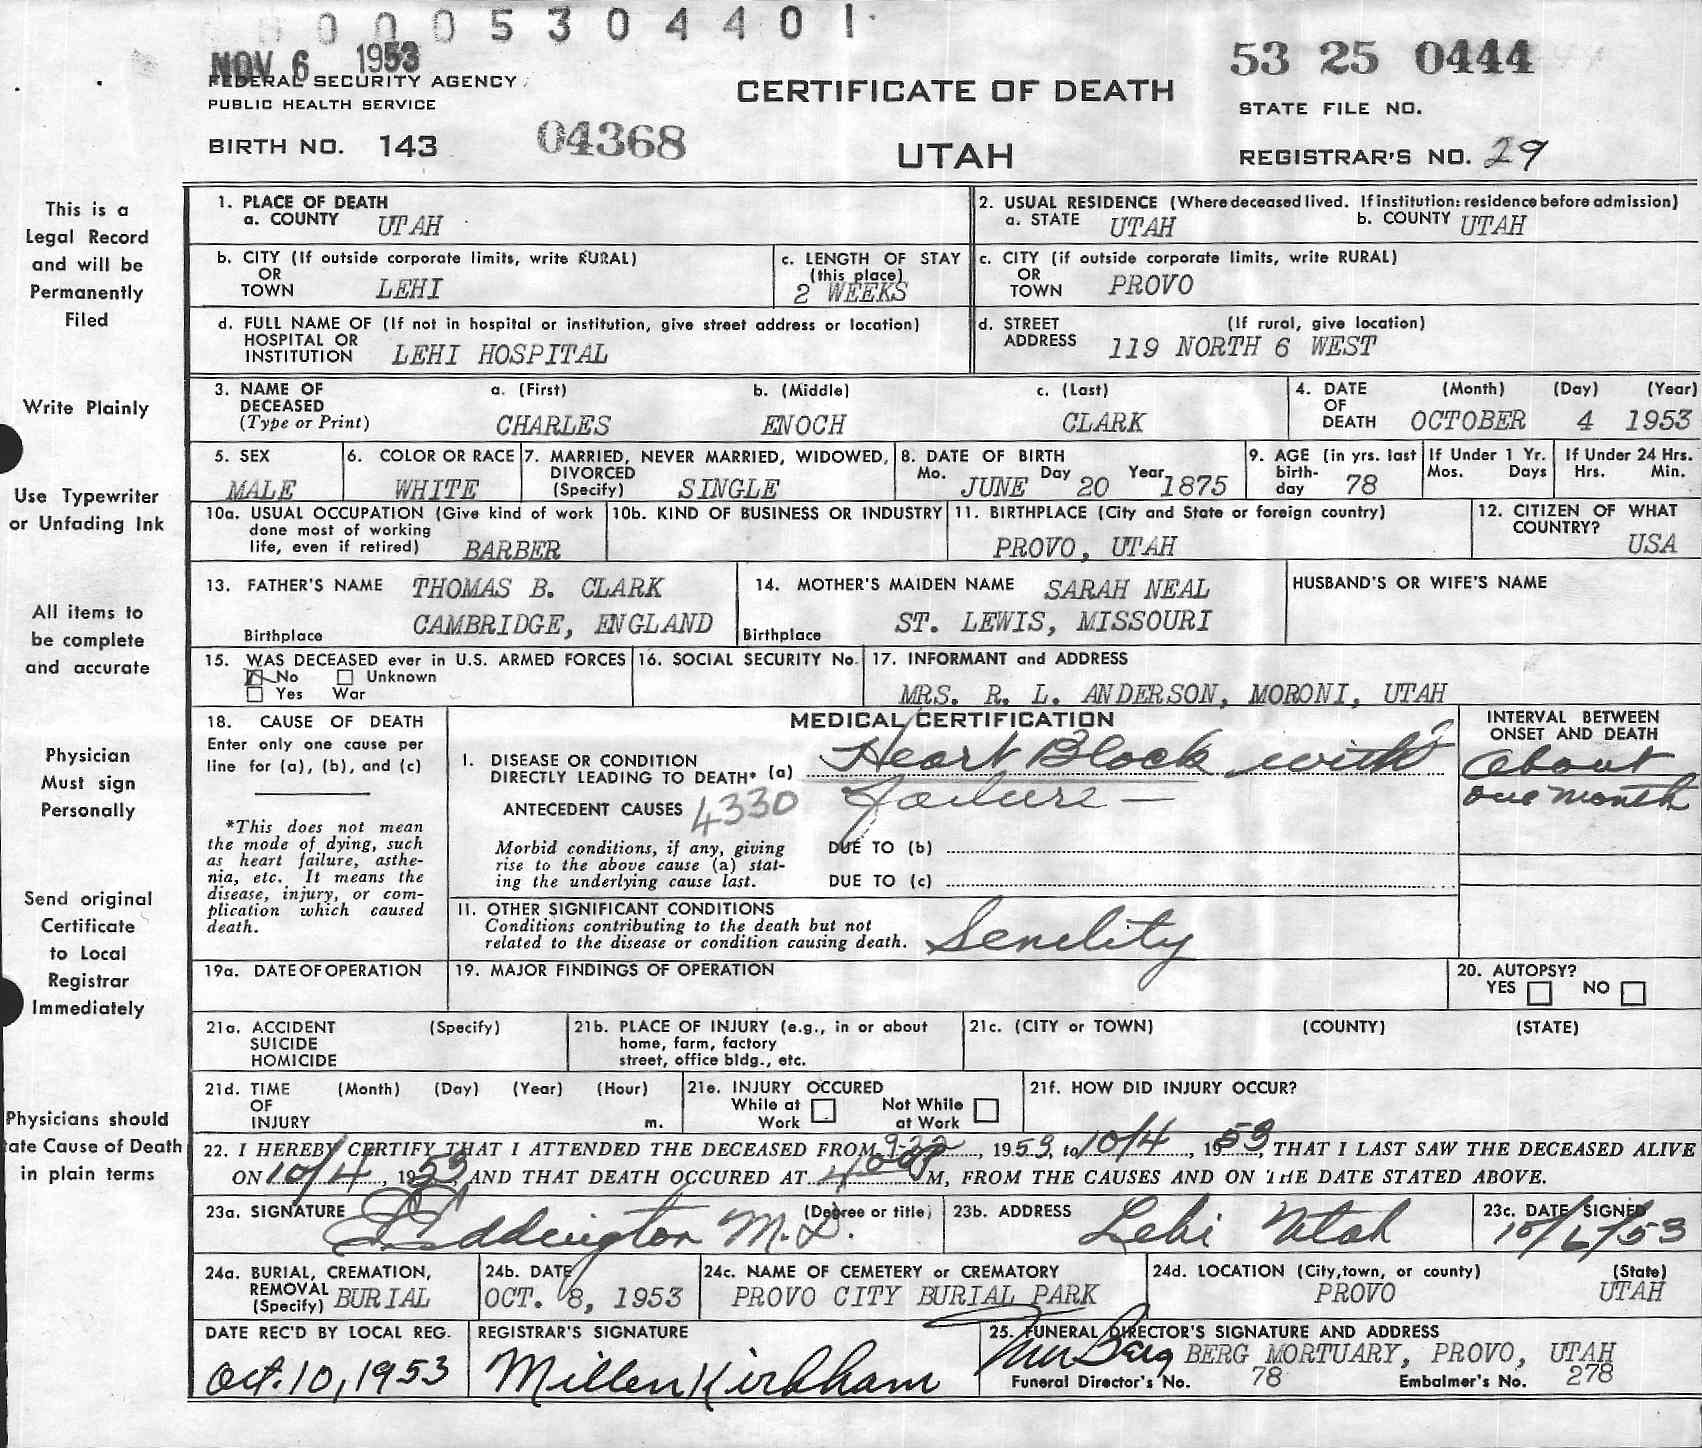 0005304401
NOV 6 1953
FEDERAL SECURITY AGENCY
PUBLIC HEALTH SERVICE
BIRTH NO. 143
04368
CERTIFICATE OF DEATH
UTAH
53 25 0444
STATE FILE NO.
REGISTRAR'S NO. 29
This is a
Legal Record
and will be
Permanently
Filed
Write Plainly
Use Typewriter
or Unfading Ink
All items to
be complete
and accurate
Physician
Must sign
Personally
Send original
Certificate
to Local
Registrar
Immediately
Physicians should
ate Cause of Death
in plain terms
1. PLACE OF DEATH
a. COUNTY UTAH
2. USUAL RESIDENCE (Where deceased lived. If institution: residence before admission)
a. STATE UTAH b. COUNTY UTAH
b. CITY (If outside corporate limits, write RURAL)
OR
TOWN LEHI
c. LENGTH OF STAY
(this place)
2 WEEKS
c. CITY (if outside corporate limits, write RURAL)
OR
TOWN PROVO
d. FULL NAME OF (If not in hospital or institution, give street address or location)
HOSPITAL OR
INSTITUTION LEHI HOSPITAL
d. STREET (If rural, give location)
ADDRESS 119 NORTH 6 WEST
3. NAME OF a. (First) b. (Middle) c. (Last)
DECEASED
(Type or Print) CHARLES ENOCH CLARK
4. DATE (Month) (Day) (Year)
OF
DEATH OCTOBER 4 1953
5. SEX
MALE
6. COLOR OR RACE
WHITE
7. MARRIED, NEVER MARRIED, WIDOWED,
DIVORCED
(Specify) SINGLE
8. DATE OF BIRTH
Mo. JUNE Day 20 Year 1875
9. AGE (in yrs. last
birth-
day 78
If Under 1 Yr.
Mos. Days
If Under 24 Hrs.
Hrs. Min.
10a. USUAL OCCUPATION (Give kind of work
done most of working
life, even if retired) BARBER
10b. KIND OF BUSINESS OR INDUSTRY
11. BIRTHPLACE (City and State or foreign country)
PROVO, UTAH
12. CITIZEN OF WHAT
COUNTRY?
USA
13. FATHER'S NAME THOMAS B. CLARK
Birthplace CAMBRIDGE, ENGLAND
14. MOTHER'S MAIDEN NAME SARAH NEAL
Birthplace ST. LEWIS, MISSOURI
HUSBAND'S OR WIFE'S NAME
15. WAS DECEASED ever in U.S. ARMED FORCES
No Unknown
Yes War
16. SOCIAL SECURITY No.
17. INFORMANT and ADDRESS
MRS. R. L. ANDERSON, MORONI, UTAH
18. CAUSE OF DEATH
Enter only one cause per
line for (a), (b), and (c)
*This does not mean
the mode of dying, such
as heart failure, asthe-
nia, etc. It means the
disease, injury, or com-
plication which caused
death.
MEDICAL CERTIFICATION
I. DISEASE OR CONDITION
DIRECTLY LEADING TO DEATH* (a) Heart Block with
failure —
ANTECEDENT CAUSES 4330
Morbid conditions, if any, giving
rise to the above cause (a) stat-
ing the underlying cause last.
DUE TO (b)
DUE TO (c)
INTERVAL BETWEEN
ONSET AND DEATH
About
one month
11. OTHER SIGNIFICANT CONDITIONS
Conditions contributing to the death but not
related to the disease or condition causing death. Senelity
19a. DATE OF OPERATION
19. MAJOR FINDINGS OF OPERATION
20. AUTOPSY?
YES NO
21a. ACCIDENT (Specify)
SUICIDE
HOMICIDE
21b. PLACE OF INJURY (e.g., in or about
home, farm, factory
street, office bldg., etc.
21c. (CITY or TOWN) (COUNTY) (STATE)
21d. TIME (Month) (Day) (Year) (Hour)
OF
INJURY m.
21e. INJURY OCCURED
While at Not While
Work at Work
21f. HOW DID INJURY OCCUR?
22. I HEREBY CERTIFY THAT I ATTENDED THE DECEASED FROM 9-22, 1953, to 10/4, 1953, THAT I LAST SAW THE DECEASED ALIVE
ON 10/4, 1953, AND THAT DEATH OCCURED AT 4:00P M, FROM THE CAUSES AND ON THE DATE STATED ABOVE.
23a. SIGNATURE (Degree or title)
Eddington M.D.
23b. ADDRESS
Lehi Utah
23c. DATE SIGNED
10/6/53
24a. BURIAL, CREMATION,
REMOVAL
(Specify) BURIAL
24b. DATE
OCT. 8, 1953
24c. NAME OF CEMETERY or CREMATORY
PROVO CITY BURIAL PARK
24d. LOCATION (City, town, or county) (State)
PROVO UTAH
DATE REC'D BY LOCAL REG.
Oct. 10, 1953
REGISTRAR'S SIGNATURE
Millen Kirkham
25. FUNERAL DIRECTOR'S SIGNATURE AND ADDRESS
Berg BERG MORTUARY, PROVO, UTAH
Funeral Director's No. 78 Embalmer's No. 278